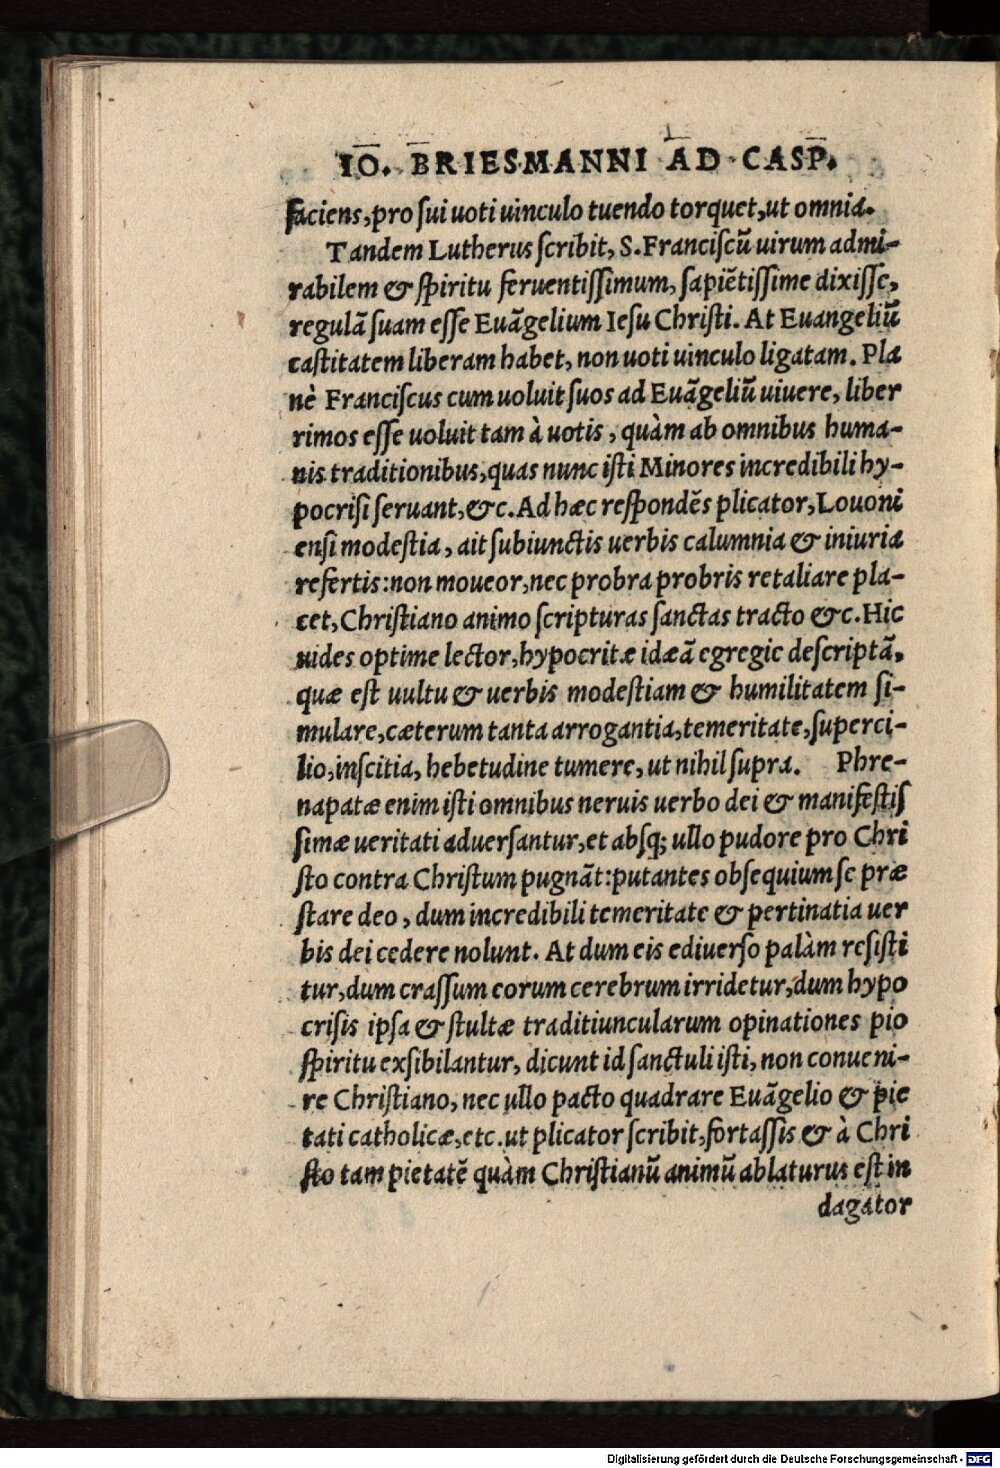 IO. BRIESMANNI AD CASP.
faciens, pro ſui uoti uinculo tuendo torquet, ut omnia.
Tandem Lutherus ſcribit, S. Franciſcū uirum admi-
rabilem & ſpiritu feruentiſſimum, ſapiētiſſime dixiſſe,
regulā ſuam eſſe Euāgelium Ieſu Chriſti. At Euangeliū
caſtitatem liberam habet, non uoti uinculo ligatam. Pla
nè Franciſcus cum uoluit ſuos ad Euāgeliū uiuere, liber
rimos eſſe uoluit tam à uotis, quàm ab omnibus huma-
nis traditionibus, quas nunc iſti Minores incredibili hy-
pocriſi ſeruant, &c. Ad hæc reſpondēs plicator, Louoni
enſi modeſtia, ait ſubiunctis uerbis calumnia & iniuria
refertis: non moueor, nec probra probris retaliare pla-
cet, Chriſtiano animo ſcripturas ſanctas tracto &c. Hic
uides optime lector, hypocritæ idæā egregie deſcriptā,
quæ eſt uultu & uerbis modeſtiam & humilitatem ſi-
mulare, cæterum tanta arrogantia, temeritate, ſuperci-
lio, inſcitia, hebetudine tumere, ut nihil ſupra. Phre-
napatæ enim iſti omnibus neruis uerbo dei & manifeſtiſ
ſimæ ueritati aduerſantur, et abſq; ullo pudore pro Chri
ſto contra Chriſtum pugnāt: putantes obſequium ſe præ
ſtare deo, dum incredibili temeritate & pertinatia uer
bis dei cedere nolunt. At dum eis ediuerſo palàm reſiſti
tur, dum craſſum eorum cerebrum irridetur, dum hypo
criſis ipſa & ſtultæ traditiuncularum opinationes pio
ſpiritu exſibilantur, dicunt id ſanctuli iſti, non conueni-
re Chriſtiano, nec ullo pacto quadrare Euāgelio & pie
tati catholicæ, etc. ut plicator ſcribit, fortaſſis & à Chri
ſto tam pietatē quàm Chriſtianū animū ablaturus eſt in
dagator
Digitalisierung gefördert durch die Deutsche Forschungsgemeinschaft - DFG